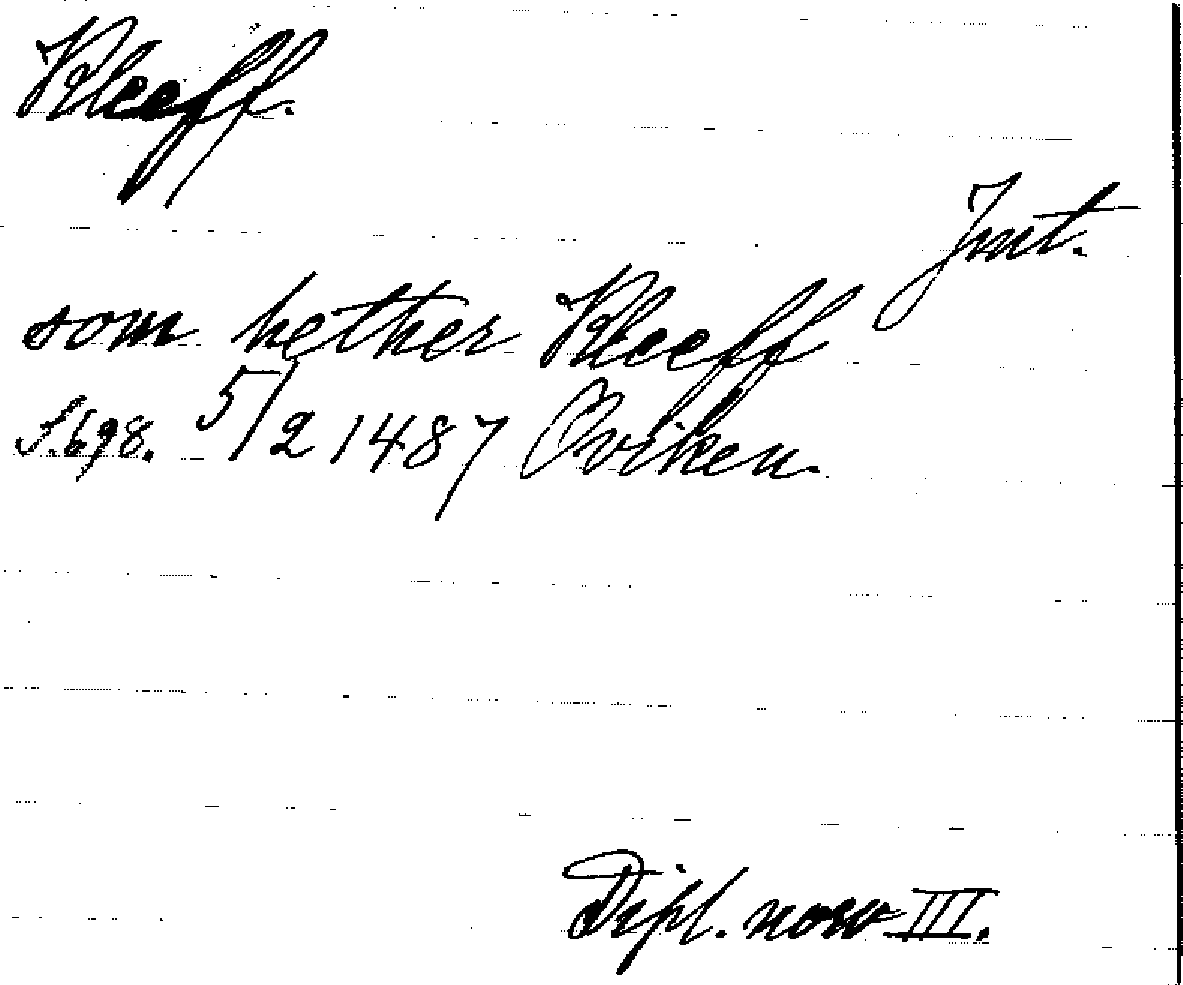 Kleeff.
Jmt.
som hether Kleeff
S. 698. 5/2 1487 Oviken.
Dipl. norv III.